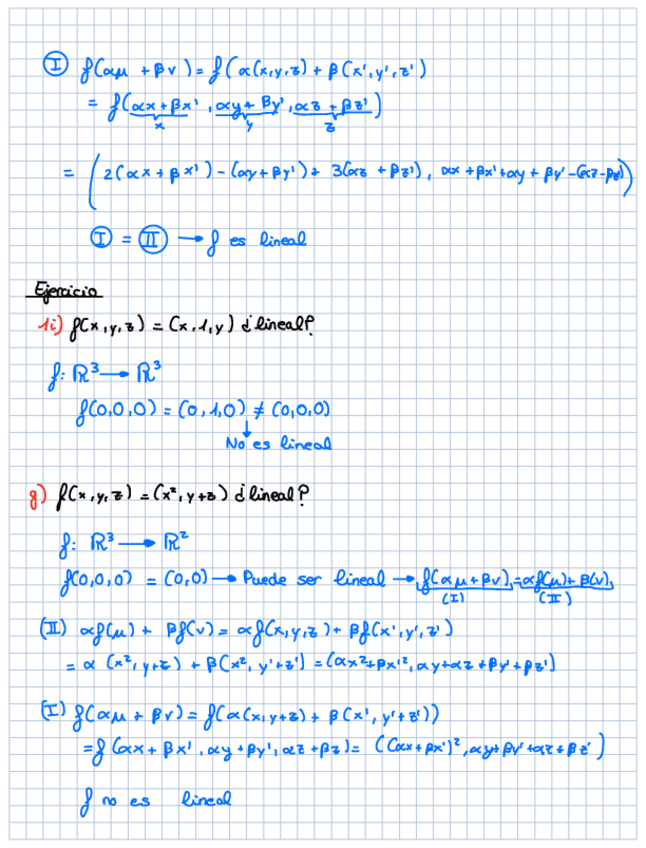 Ⓘ f(αμ + βv) = f(α(x,y,z) + β(x',y',z')
= f(αx + βx', αy + βy', αz + βz')
x y z
= (2(αx + βx') - (αy + βy') + 3(αz + βz'), αx + βx' + αy + βy' - (αz - βz))
Ⓘ = Ⓘⓘ → f es lineal
Ejercicio
1i) f(x,y,z) = (x,1,y) ¿lineal?
f: ℝ³ → ℝ³
f(0,0,0) = (0,1,0) ≠ (0,0,0)
↓
No es lineal
g) f(x,y,z) = (x², y+z) ¿lineal?
f: ℝ³ → ℝ²
f(0,0,0) = (0,0) → Puede ser lineal → f(αμ + βv) = αf(μ) + β(v)
(I) (II)
(II) αf(μ) + βf(v) = αf(x,y,z) + βf(x',y',z')
= α (x², y+z) + β(x², y'+z') = (αx²+βx'², αy+αz+βy'+βz')
(I) f(αμ + βv) = f(α(x,y+z) + β(x',y'+z'))
= f (αx + βx', αy + βy', αz + βz) = ((αx + βx')², αy + βy' + αz + βz')
f no es lineal